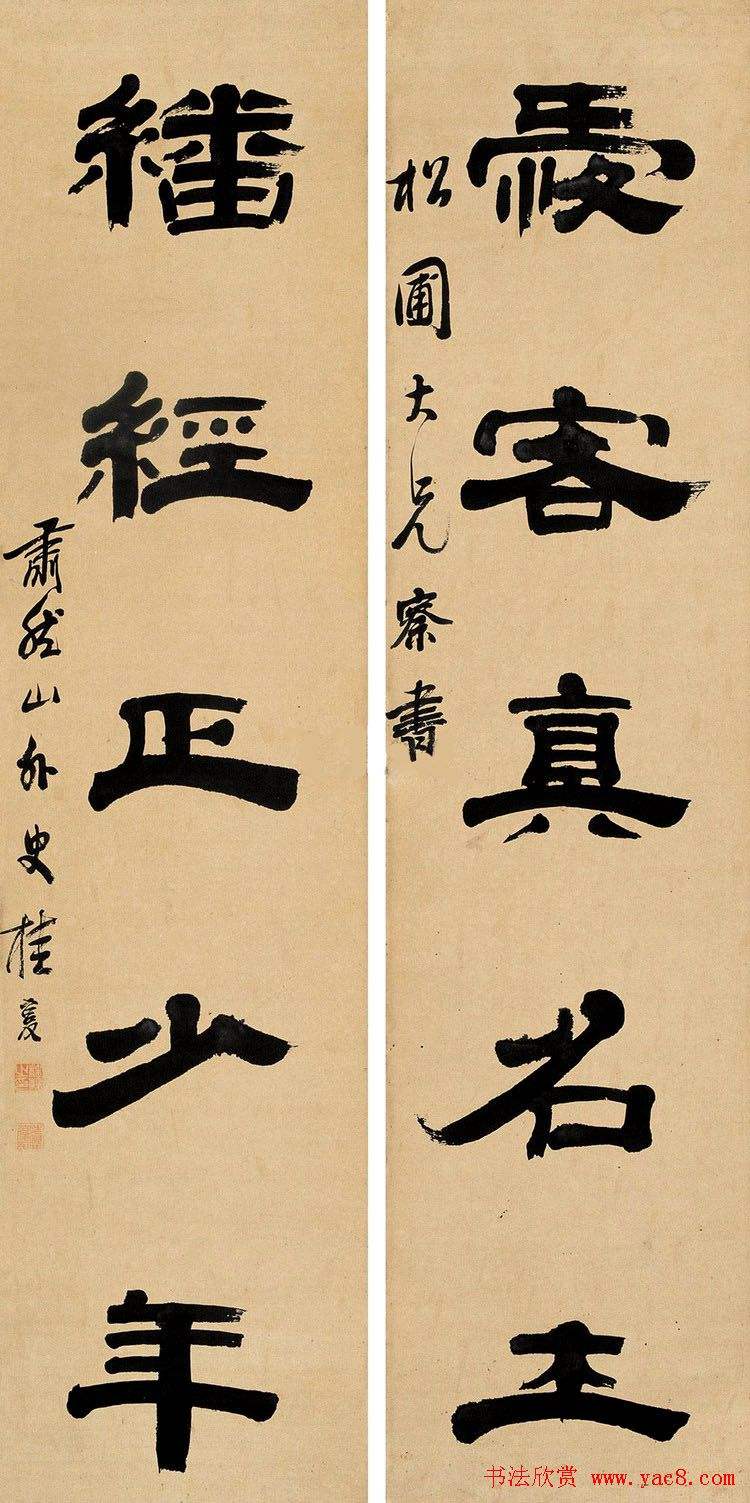 愛客真名士
松圃大兄察書
繙經正少年
肅然山外史桂馥
书法欣赏 www.yac8.com